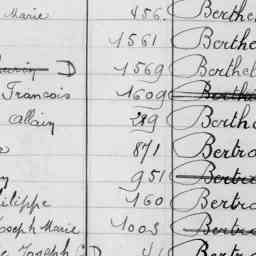 Marie 456. Berthe
1561 Berthe
D 1569 Berthel
François 1609
Allain 289 Bertho
871 Bertra
951
Philippe 160 Bertra
Joseph Marie 1003
Joseph D 41 Bertra